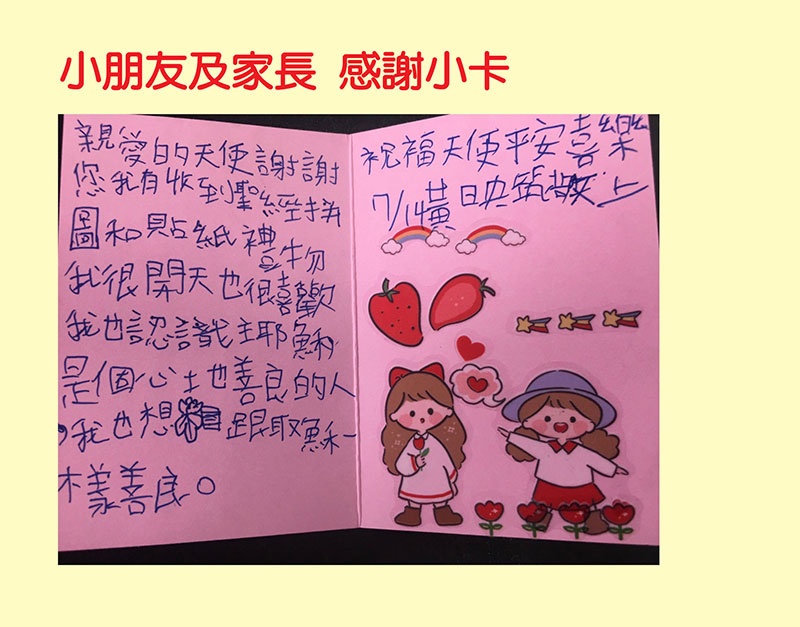 小朋友及家長 感謝小卡
親愛的天使謝謝
您我有收到聖經拼
圖和貼紙禮物
我很開天也很喜歡
我也認識主耶穌
是個心土也善良的人
,我也想 跟耶穌一
樣善良。
祝福天使平安喜樂
7/14黃映筑 上